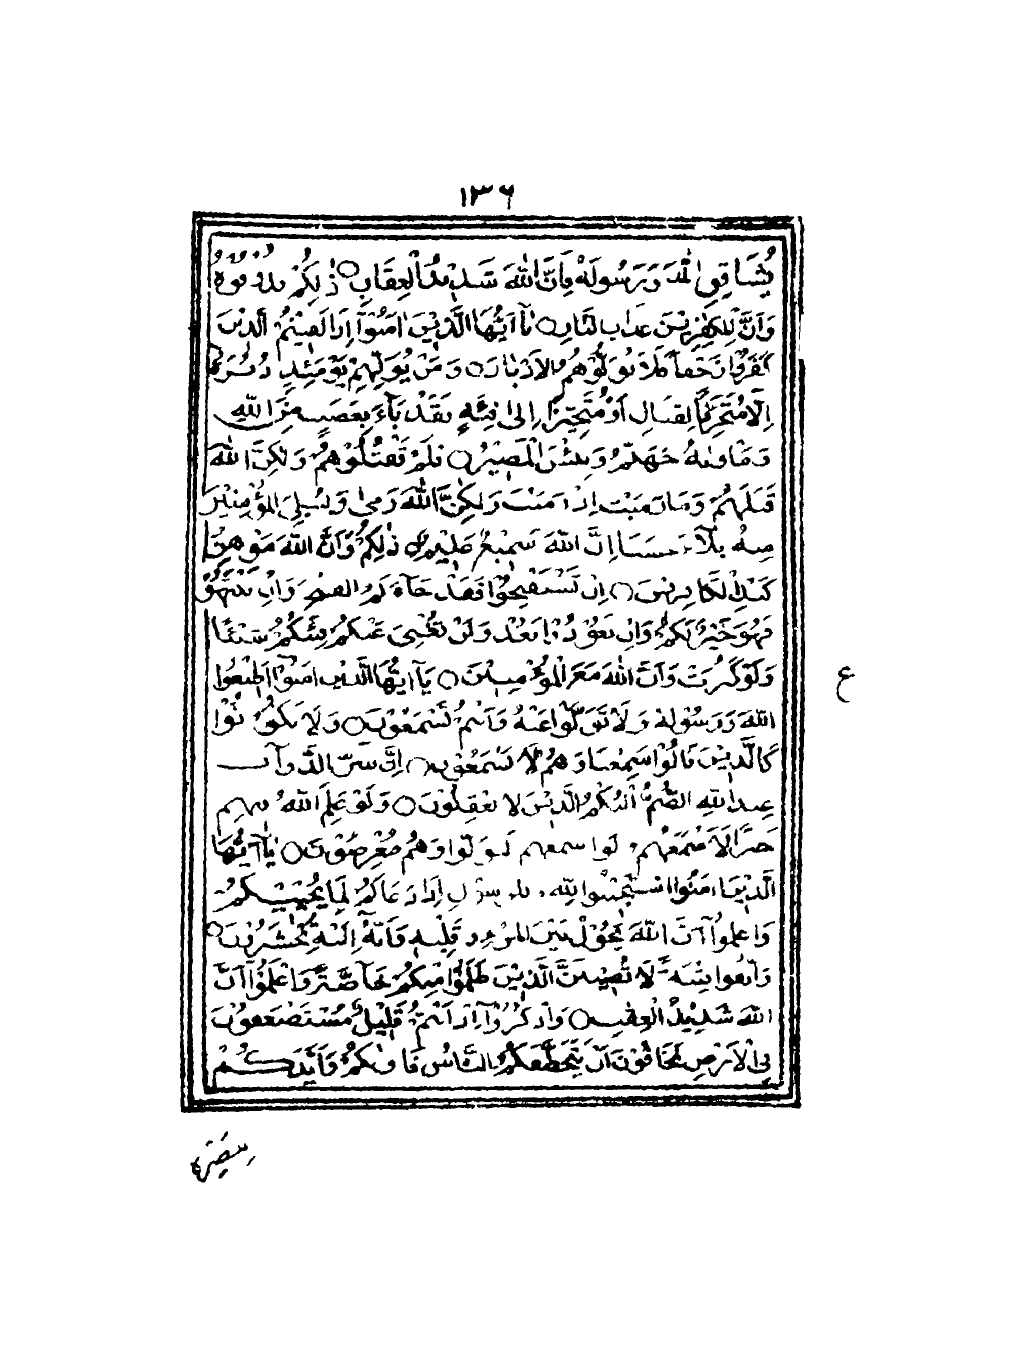 ١٣٦
يُشَاقِقِ اللّٰهَ وَرَسُولَهُ فَاِنَّ اللّٰهَ شَدِيْدُ الْعِقَابِ ○ ذٰلِكُمْ فَذُوْقُوْهُ
وَاَنَّ لِلْكٰفِرِيْنَ عَذَابَ النَّارِ ○ يٰٓاَيُّهَا الَّذِيْنَ اٰمَنُوْٓا اِذَا لَقِيْتُمُ الَّذِيْنَ
كَفَرُوْا زَحْفًا فَلَا تُوَلُّوْهُمُ الْاَدْبَارَ ○ وَمَنْ يُوَلِّهِمْ يَوْمَئِذٍ دُبُرَهٗ
اِلَّا مُتَحَرِّفًا لِقِتَالٍ اَوْ مُتَحَيِّزًا اِلٰى فِئَةٍ فَقَدْ بَآءَ بِغَضَبٍ مِنَ اللّٰهِ
وَمَاْوٰىهُ جَهَنَّمُ وَبِئْسَ الْمَصِيْرُ ○ فَلَمْ تَقْتُلُوْهُمْ وَلٰكِنَّ اللّٰهَ
قَتَلَهُمْ وَمَا رَمَيْتَ اِذْ رَمَيْتَ وَلٰكِنَّ اللّٰهَ رَمٰى وَلِيُبْلِيَ الْمُؤْمِنِيْنَ
مِنْهُ بَلَآءً حَسَنًا اِنَّ اللّٰهَ سَمِيْعٌ عَلِيْمٌ ○ ذٰلِكُمْ وَاَنَّ اللّٰهَ مُوْهِنُ
كَيْدِ الْكَافِرِيْنَ ○ اِنْ تَسْتَفْتِحُوْا فَقَدْ جَآءَكُمُ الْفَتْحُ وَاِنْ تَنْتَهُوْا
فَهُوَ خَيْرٌ لَكُمْ وَاِنْ تَعُوْدُوْا نَعُدْ وَلَنْ تُغْنِيَ عَنْكُمْ فِئَتُكُمْ شَيْئًا
وَلَوْ كَثُرَتْ وَاَنَّ اللّٰهَ مَعَ الْمُؤْمِنِيْنَ ○ يٰٓاَيُّهَا الَّذِيْنَ اٰمَنُوْٓا اَطِيْعُوا
اللّٰهَ وَرَسُوْلَهٗ وَلَا تَوَلَّوْا عَنْهُ وَاَنْتُمْ تَسْمَعُوْنَ ○ وَلَا تَكُوْنُوْا
كَالَّذِيْنَ قَالُوْا سَمِعْنَا وَهُمْ لَا يَسْمَعُوْنَ ○ اِنَّ شَرَّ الدَّوَآبِّ
عِنْدَ اللّٰهِ الصُّمُّ الْبُكْمُ الَّذِيْنَ لَا يَعْقِلُوْنَ ○ وَلَوْ عَلِمَ اللّٰهُ فِيْهِمْ
خَيْرًا لَاَسْمَعَهُمْ وَلَوْ اَسْمَعَهُمْ لَتَوَلَّوْا وَهُمْ مُعْرِضُوْنَ ○ يٰٓاَيُّهَا
الَّذِيْنَ اٰمَنُوا اسْتَجِيْبُوْا لِلّٰهِ وَلِلرَّسُوْلِ اِذَا دَعَاكُمْ لِمَا يُحْيِيْكُمْ
وَاعْلَمُوْٓا اَنَّ اللّٰهَ يَحُوْلُ بَيْنَ الْمَرْءِ وَقَلْبِهٖ وَاَنَّهٗٓ اِلَيْهِ تُحْشَرُوْنَ ○
وَاتَّقُوْا فِتْنَةً لَا تُصِيْبَنَّ الَّذِيْنَ ظَلَمُوْا مِنْكُمْ خَآصَّةً وَاعْلَمُوْٓا اَنَّ
اللّٰهَ شَدِيْدُ الْعِقَابِ ○ وَاذْكُرُوْٓا اِذْ اَنْتُمْ قَلِيْلٌ مُسْتَضْعَفُوْنَ
فِي الْاَرْضِ تَخَافُوْنَ اَنْ يَتَخَطَّفَكُمُ النَّاسُ فَاٰوٰىكُمْ وَاَيَّدَكُمْ
ع
بِنَصْرِهٖ